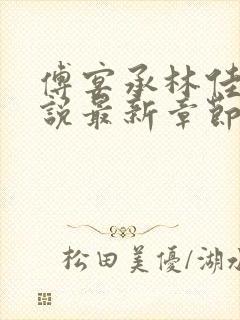 傅宴承林佳
說最新章節
松田美優/湖